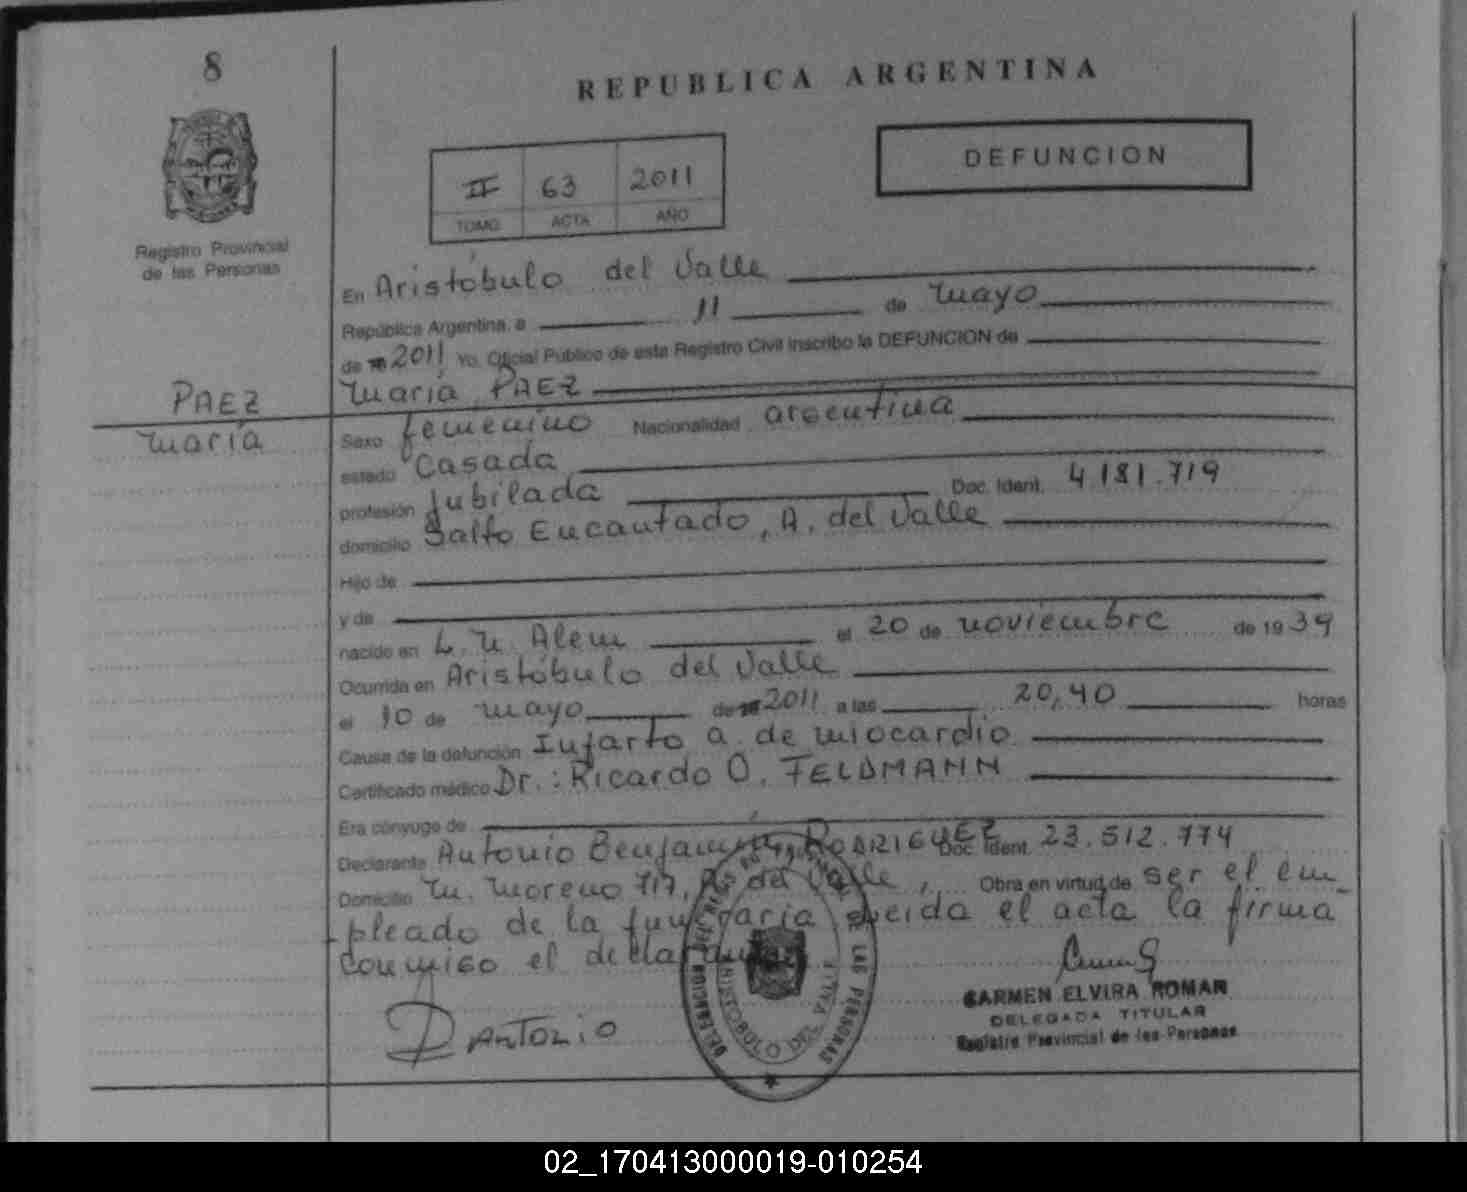 8
REPUBLICA ARGENTINA
DEFUNCION
II 63 2011
TOMO ACTA AÑO
Registro Provincial
de las Personas
En Aristóbulo del Valle
República Argentina, a 11 de Mayo
de 2011 Yo, Oficial Público de este Registro Civil inscribo la DEFUNCION de
María PAEZ
PAEZ
María
Sexo femenino Nacionalidad argentina
estado Casada
profesión Jubilada Doc. Ident. 4.181.719
domicilio Salto Encantado, A. del Valle
Hijo de
y de
nacido en L. N. Alem el 20 de noviembre de 1939
Ocurrida en Aristóbulo del Valle
el 10 de mayo de 2011 a las 20,40 horas
Causa de la defunción Infarto a. de miocardio
Certificado médico Dr.: Ricardo O. FELDMANN
Era cónyuge de
Declarante Antonio Benjamín RODRIGUEZ Doc. Ident. 23.512.774
Domicilio M. Moreno 717, A. del Valle, Obra en virtud de ser el em-
pleado de la funeraria leída el acta la firma
conmigo el declarante
D ANTONIO
CARMEN ELVIRA ROMAN
DELEGADA TITULAR
Registro Provincial de las Personas
02_170413000019-010254